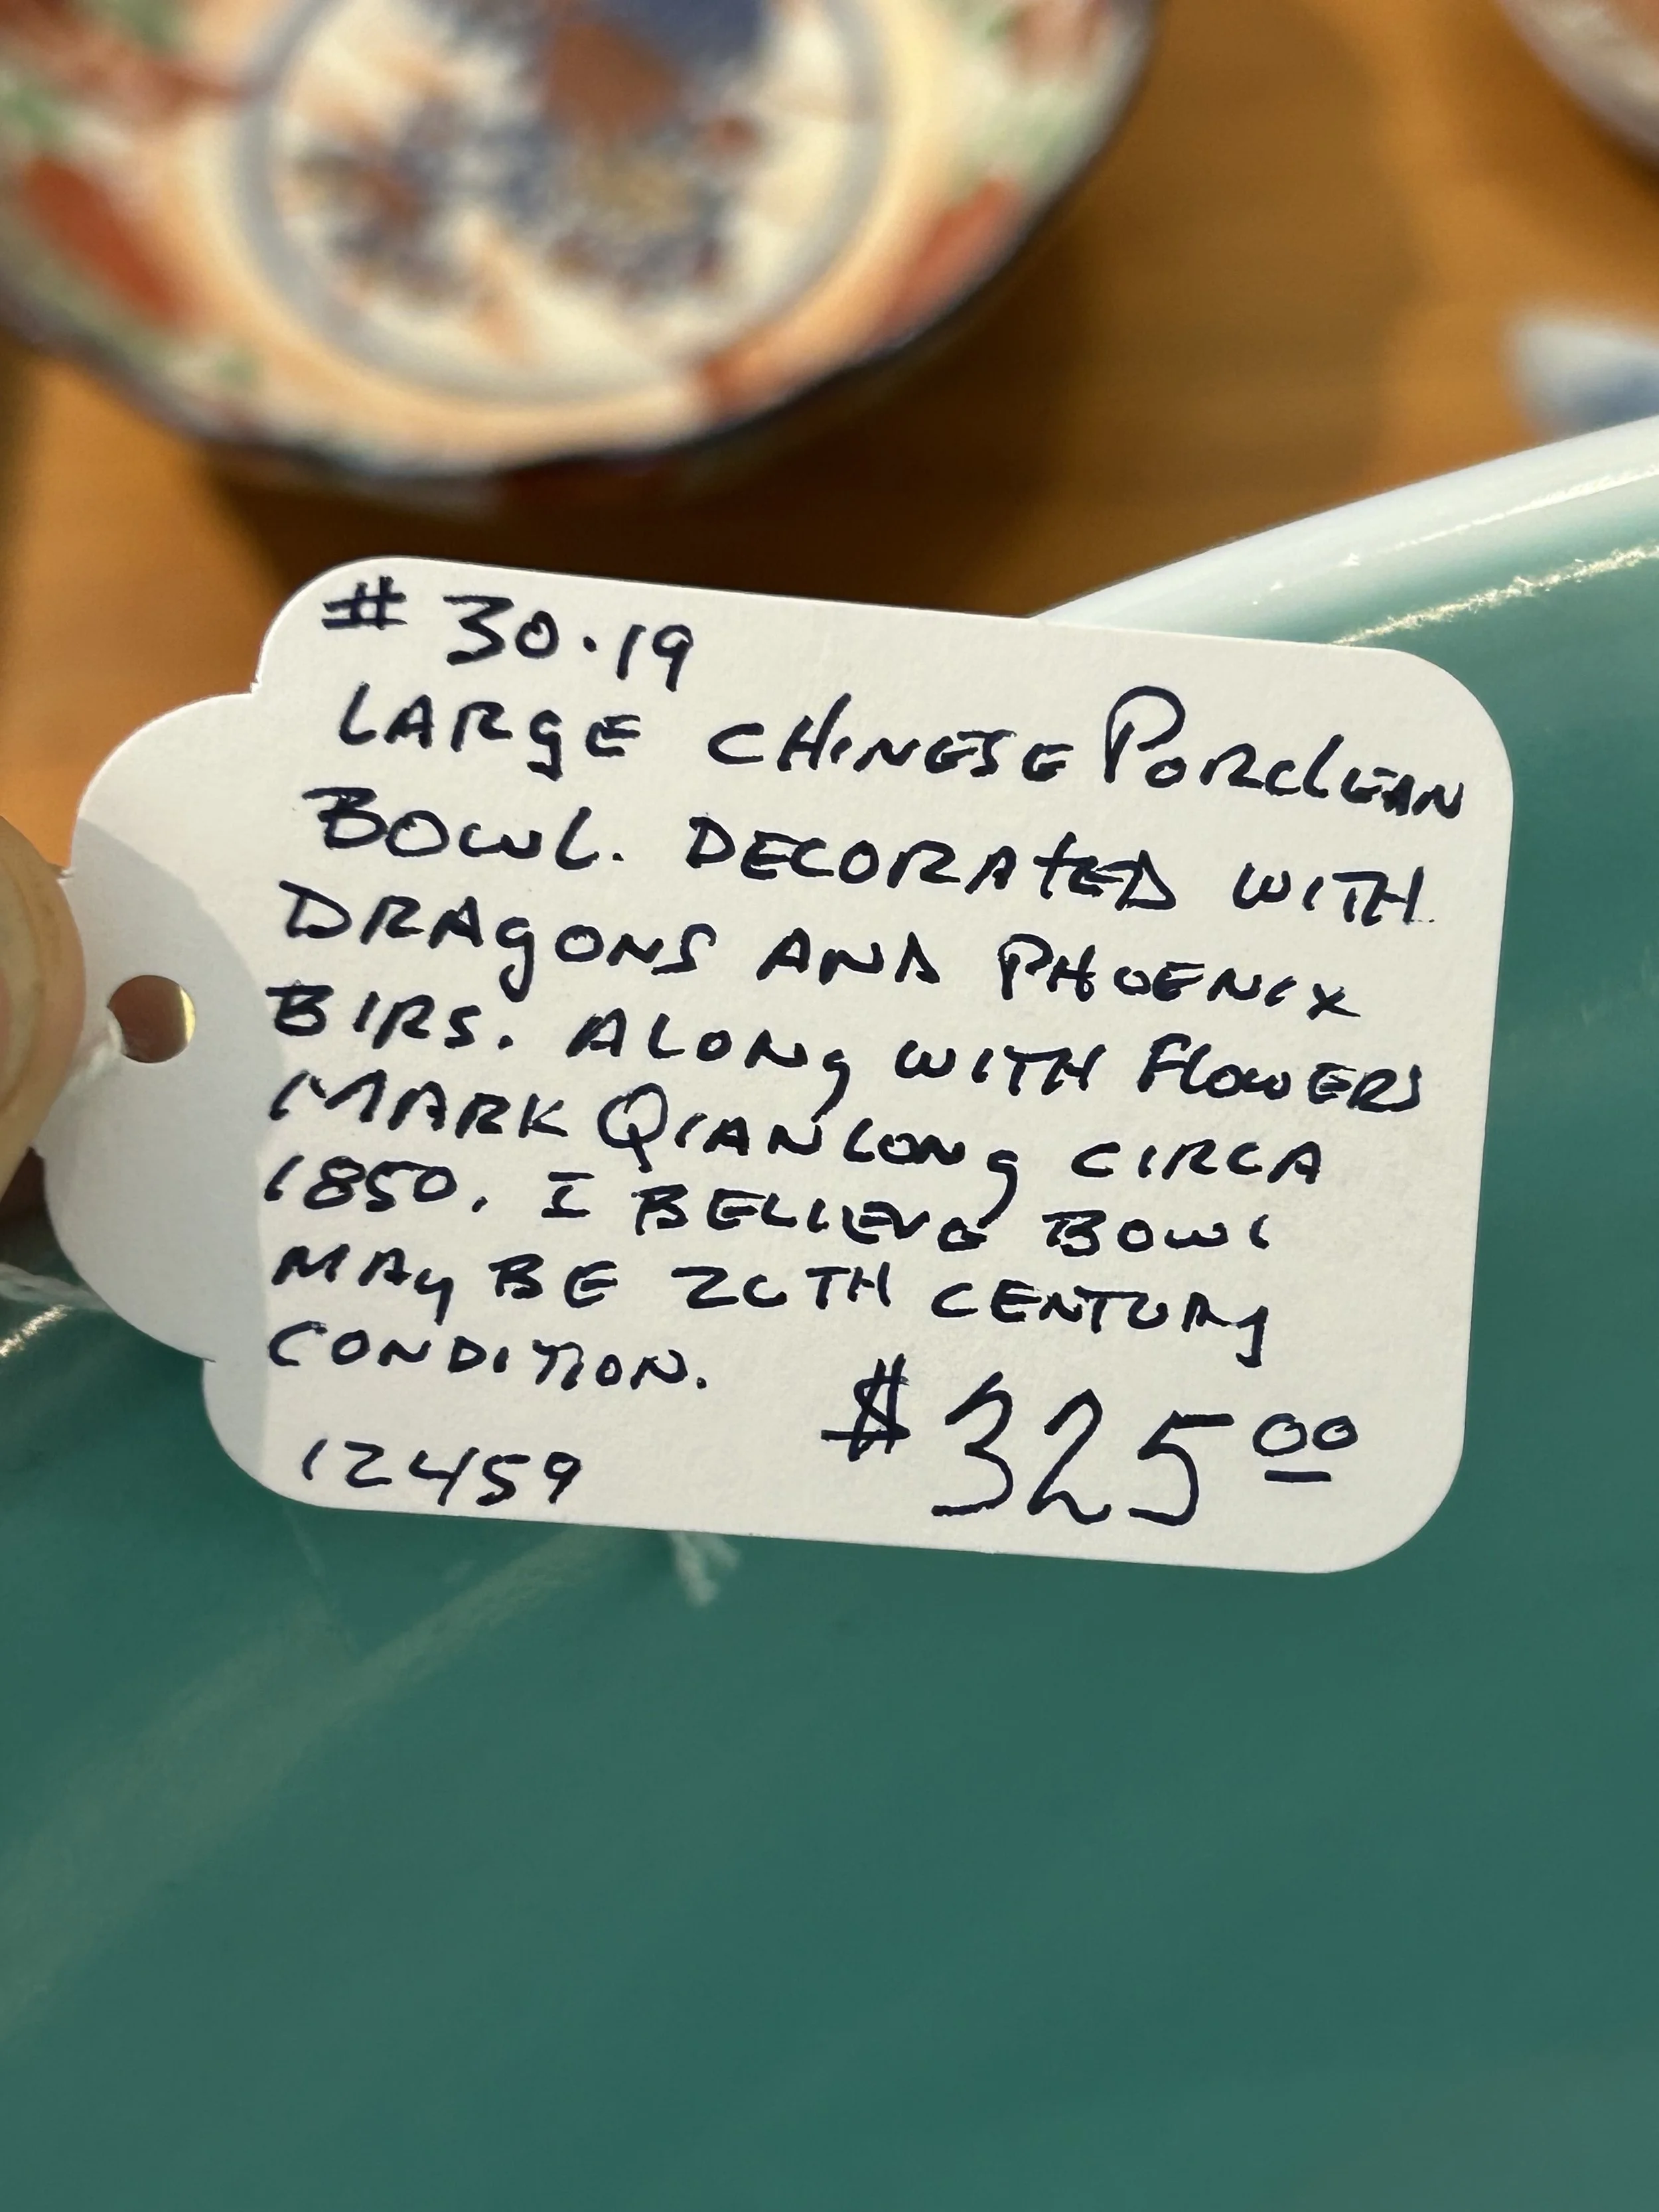 # 30.19
LARGE CHINESE PORCLEAN
BOWL. DECORATED WITH
DRAGONS AND PHOENIX
BIRS. ALONG WITH FLOWERS
MARK QIANLONG CIRCA
1850. I BELIEVE BOWL
MAY BE 20TH CENTURY
CONDITION.
$325.00
12459